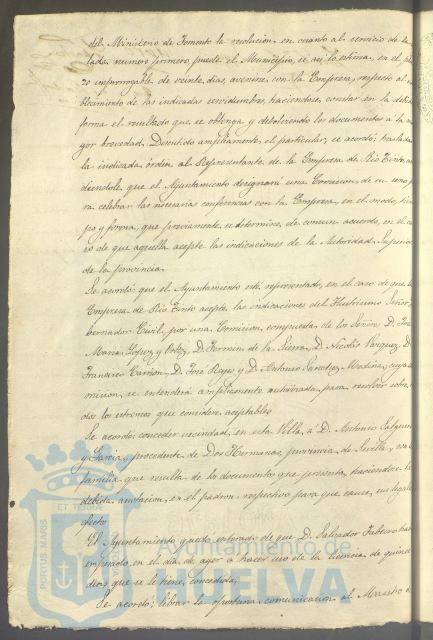 del Ministerio de Fomento la resolucion en cuanto al servicio de la
lada numero primero, puede el Municipio, si asi lo estima, en el pla
zo improrrogable de veinte dias, avenirse con la Empresa, respecto al
blecimiento de las indicadas servidumbres, haciendose constar en la debida
forma el resultado que se obtenga y devolviendo los documentos a la ma
yor brevedad. Discutido ampliamente el particular, se acordó: trasladar
la indicada órden al Representante de la Empresa de Rio Tinto, 
diendole, que el Ayuntamiento designará una Comision de su seno pa
ra celebrar las necesarias conferencias con la Empresa, en el modo, tiem
po y forma, que previamente se determine de comun acuerdo, en el ca
so de que aquella acepte las indicaciones de la Autoridad Superior
de la provincia.
Se acordó: que el Ayuntamiento esté representado, en el caso de que la
Empresa de Rio Tinto acepte las indicaciones del Ilustrisimo Señor Go
bernador Civil, por una Comision compuesta de los Señores D. José
Maria Lopez y D. Fermin de la Sierra, D. Nicolás Vazquez, D.
Francisco Carrion, D. José Reyes y D. Antonio Sanchez Medina, cuya
mision se entenderá ampliamente autorizada para resolver sobre
dos los estremos que considere aceptables
Se acordó: conceder vecindad en esta Villa á D. Antonio
y Garcia, procedente de Dos Hermanas, provincia de Sevilla, y su
familia que resulta de los documentos que presenta, haciendose la
debida anotacion en el padron respectivo para que cause sus legales
efectos
El Ayuntamiento quedó enterado de que D. Salvador ha
empezado en el dia de ayer á hacer uso de la licencia de quince
dias que se le tiene concedida.
Se acordó: librar la oportuna comunicacion al Maestro
PORTUS MARIS ET TERRÆ
Ayuntamiento de
HUELVA